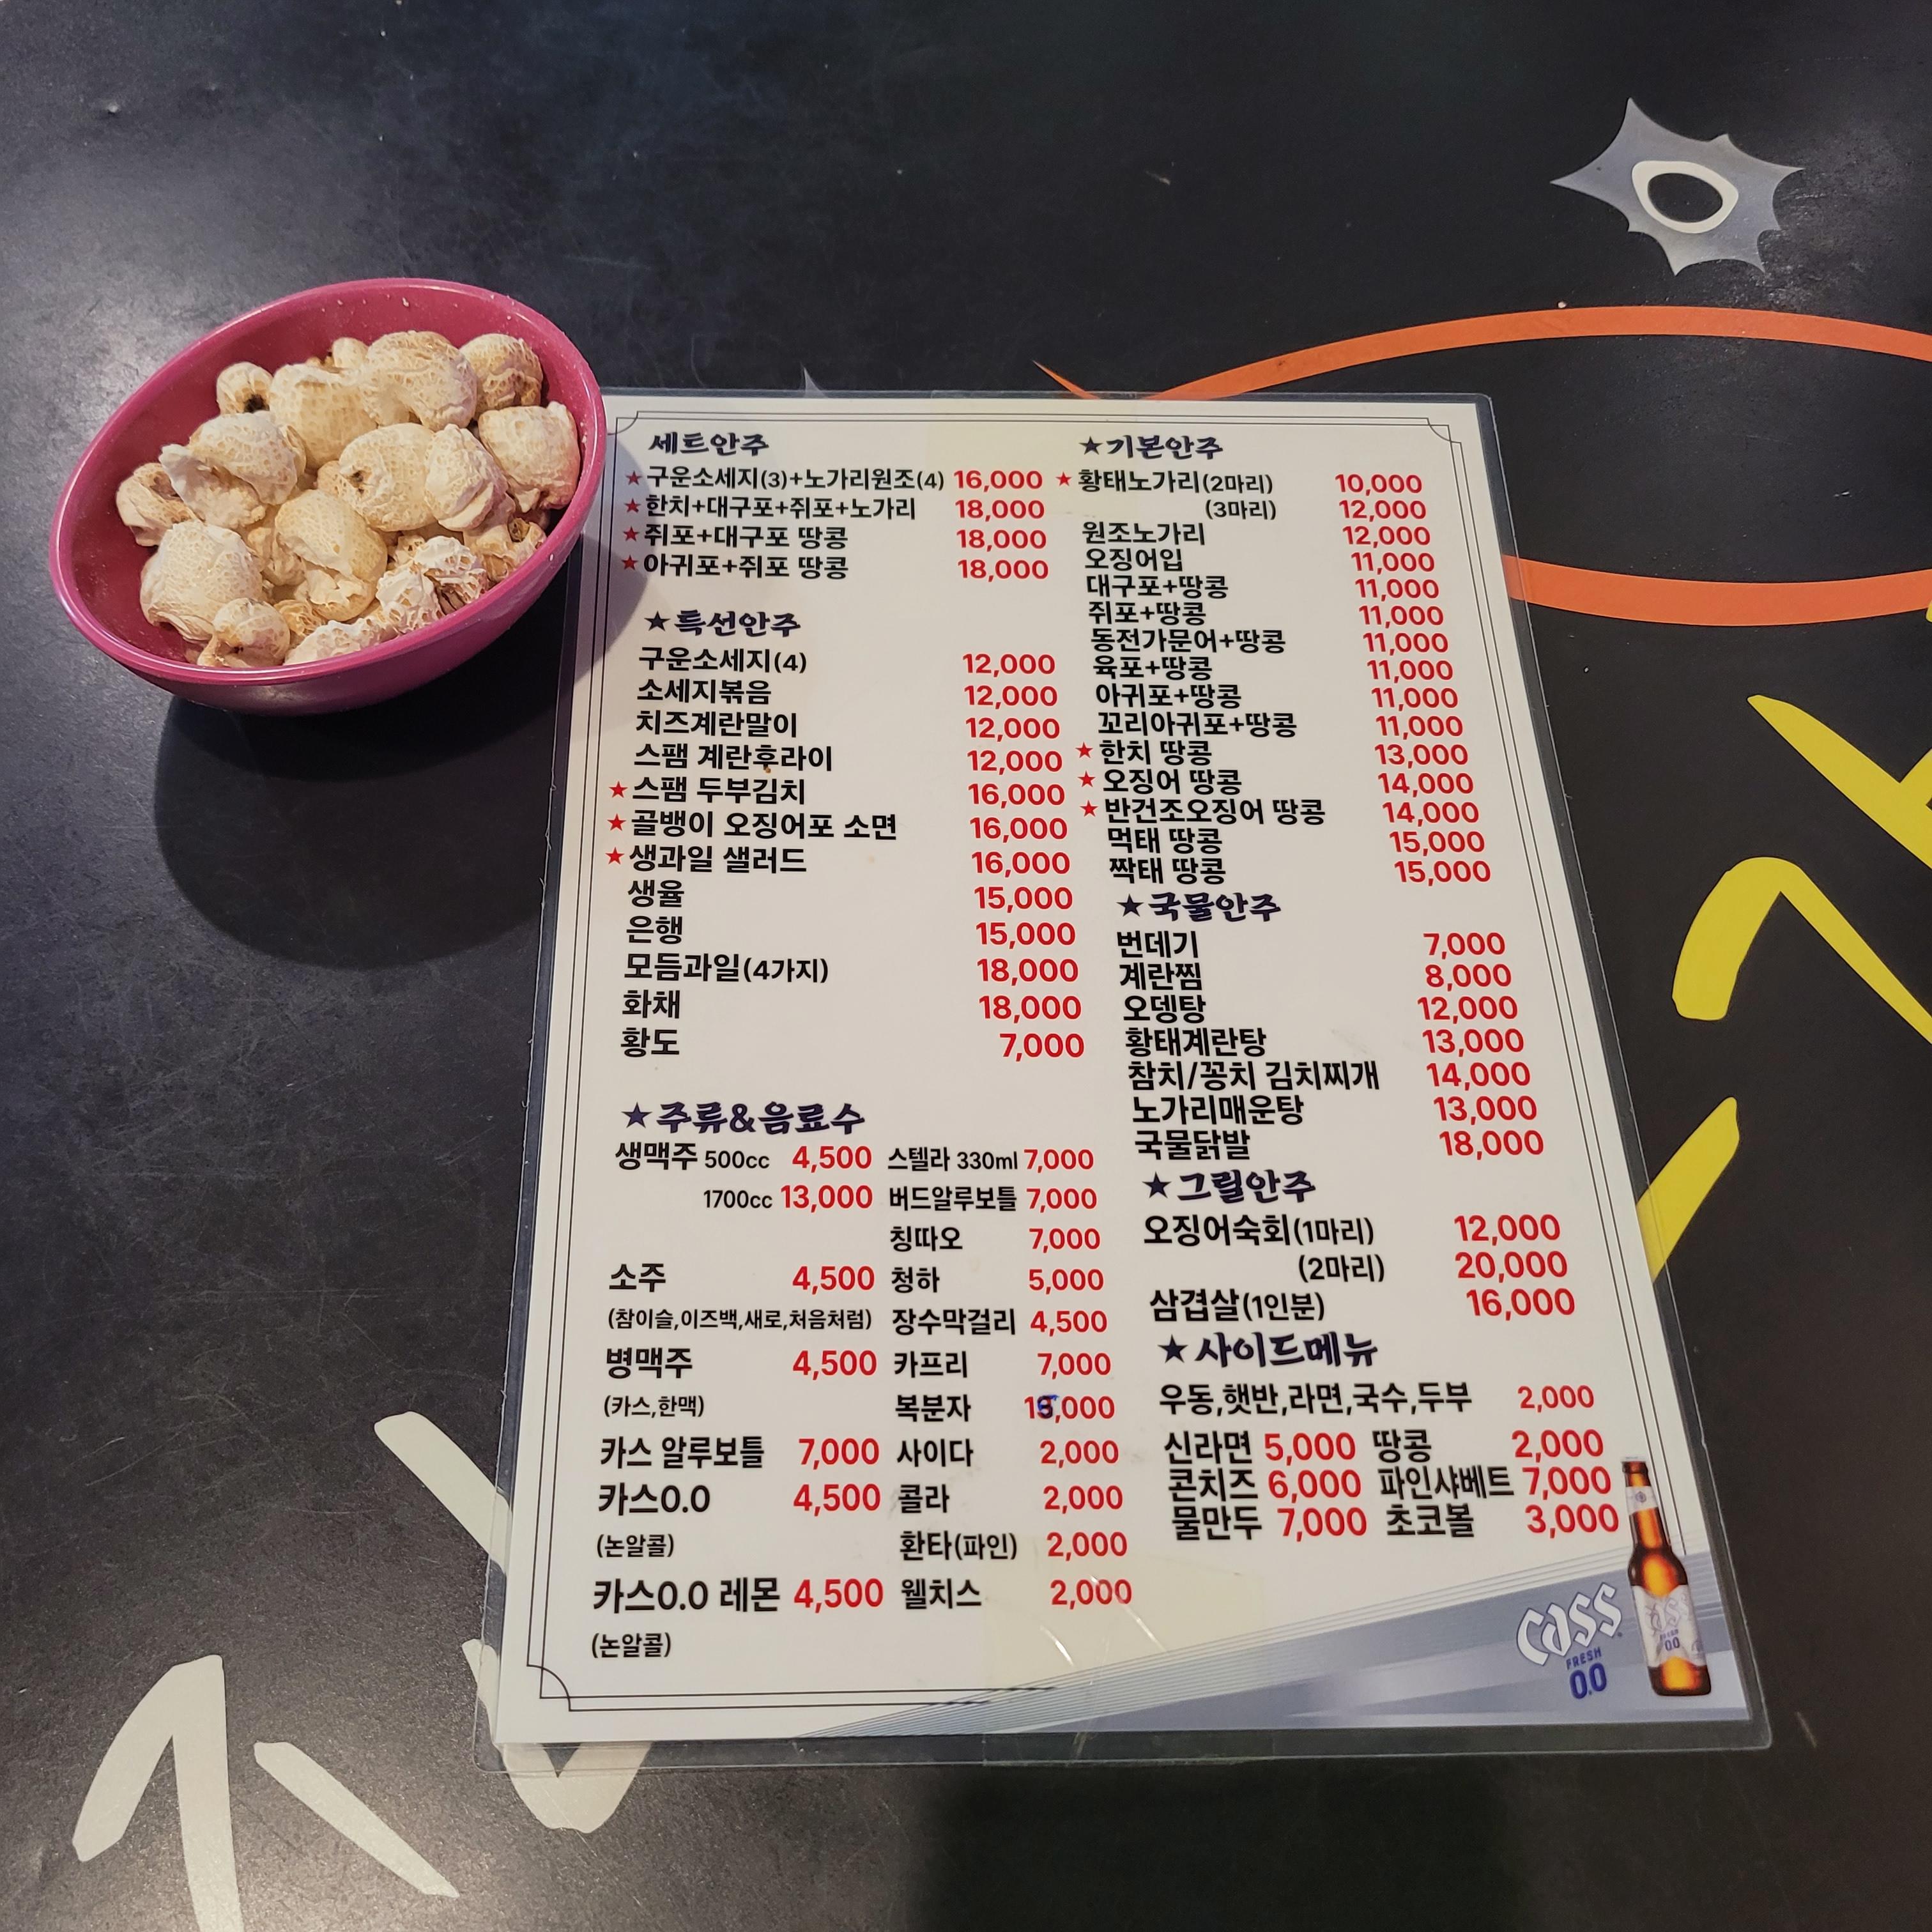 세트안주
★구운소세지(3)+노가리원조(4) 16,000
★한치+대구포+쥐포+노가리 18,000
★쥐포+대구포 땅콩 18,000
★아귀포+쥐포 땅콩 18,000
★특선안주
구운소세지(4) 12,000
소세지볶음 12,000
치즈계란말이 12,000
스팸 계란후라이 12,000
★스팸 두부김치 16,000
★골뱅이 오징어포 소면 16,000
★생과일 샐러드 16,000
생율 15,000
은행 15,000
모듬과일(4가지) 18,000
화채 18,000
황도 7,000
★주류&음료수
생맥주 500cc 4,500
1700cc 13,000
소주 4,500
(참이슬,이즈백,새로,처음처럼)
병맥주 4,500
(카스,한맥)
카스 알루보틀 7,000
카스0.0 4,500
(논알콜)
카스0.0 레몬 4,500
(논알콜)
스텔라 330ml 7,000
버드알루보틀 7,000
칭따오 7,000
청하 5,000
장수막걸리 4,500
카프리 7,000
복분자
사이다 2,000
콜라 2,000
환타(파인) 2,000
웰치스 2,000
★기본안주
★황태노가리(2마리) 10,000
(3마리) 12,000
원조노가리 12,000
오징어입 11,000
대구포+땅콩 11,000
쥐포+땅콩 11,000
동전가문어+땅콩 11,000
육포+땅콩 11,000
아귀포+땅콩 11,000
꼬리아귀포+땅콩 11,000
★한치 땅콩 13,000
★오징어 땅콩 14,000
★반건조오징어 땅콩 14,000
먹태 땅콩 15,000
짝태 땅콩 15,000
★국물안주
번데기 7,000
계란찜 8,000
오뎅탕 12,000
황태계란탕 13,000
참치/꽁치 김치찌개 14,000
노가리매운탕 13,000
국물닭발 18,000
★그릴안주
오징어숙회(1마리) 12,000
(2마리) 20,000
삼겹살(1인분) 16,000
★사이드메뉴
우동,햇반,라면,국수,두부 2,000
신라면 5,000 땅콩 2,000
콘치즈 6,000 파인샤베트 7,000
물만두 7,000 초코볼 3,000
Cass
FRESH
0.0